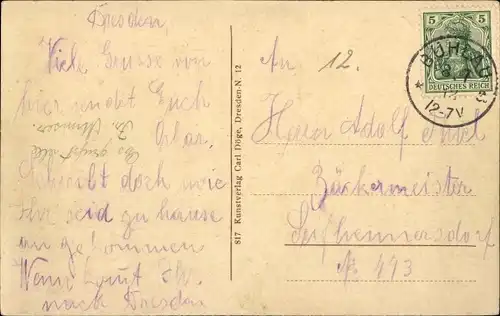 Dresden,
Viele Grüsse von
hier sendet Euch
Clar.
Schreibt doch wie
Ihr seid zu hause
an gekommen.
Wann kommt Ihr
nach Dresden
Es grüsst alle
817 Kunstverlag Carl Döge, Dresden-N. 12
An 12.
5 5
DEUTSCHES REICH
BÜHLAU
12-7V
Herr Adolf
Bäckermeister
Seifhennersdorf
№ 493